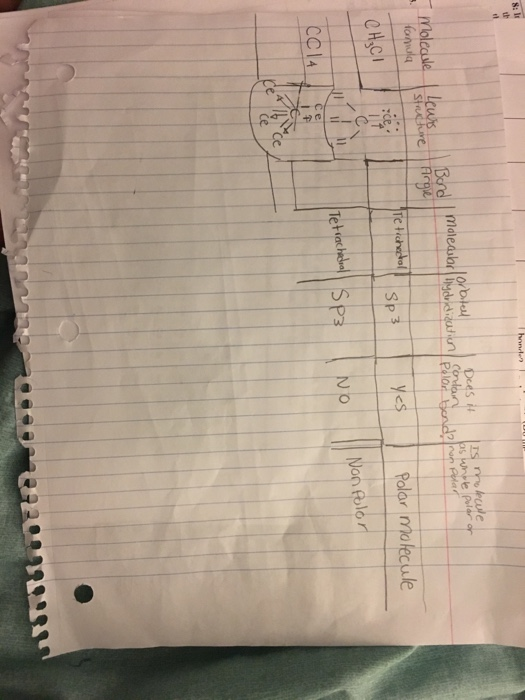 Molecule formula
Lewis structure
Bond Angle
Molecular
orbital hybridization
Does it contain polar bonds?
IS molecule as whole polar or non polar
CH3Cl
Tetrahedral
Sp3
Yes
Polar molecule
C
CCl4
Tetrahedral
Sp3
NO
Nonpolar